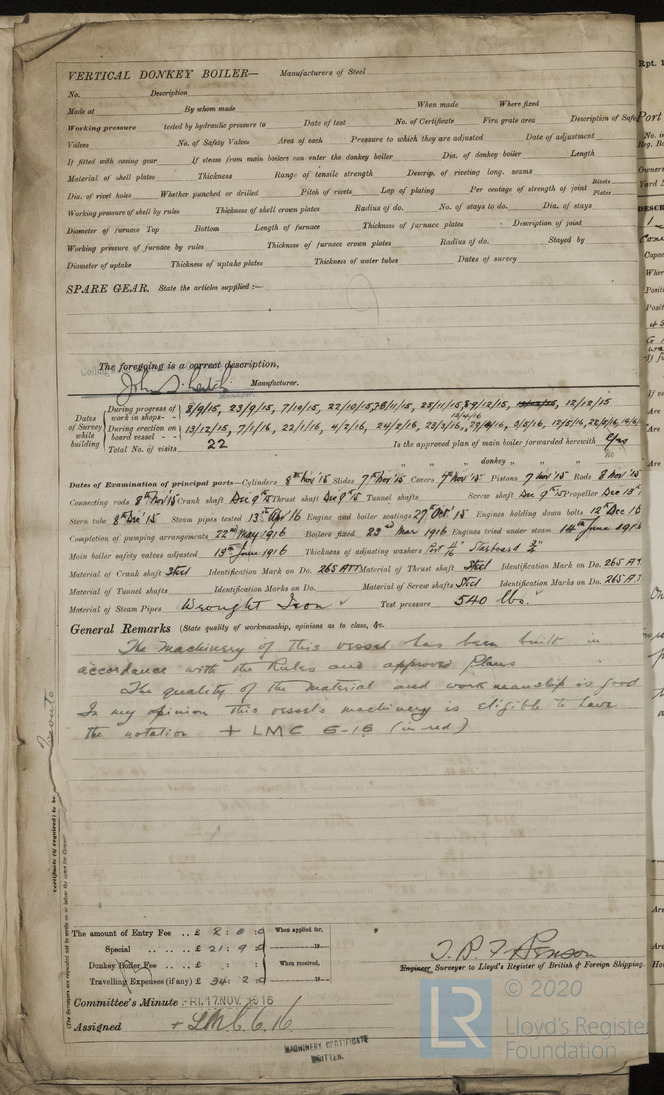 VERTICAL DONKEY BOILER— Manufacturers of Steel
No. Description
Made at By whom made When made Where fixed
Working pressure tested by hydraulic pressure to Date of test No. of Certificate Fire grate area Description of Safe
Valves No. of Safety Valves Area of each Pressure to which they are adjusted Date of adjustment
If fitted with casing gear If steam from main boilers can enter the donkey boiler Dia. of donkey boiler Length
Material of shell plates Thickness Range of tensile strength Descrip. of riveting long. seams
Dia. of rivet holes Whether punched or drilled Pitch of rivets Lap of plating Per centage of strength of joint Rivets Plates
Working pressure of shell by rules Thickness of shell crown plates Radius of do. No. of stays to do. Dia. of stays
Diameter of furnace Top Bottom Length of furnace Thickness of furnace plates Description of joint
Working pressure of furnace by rules Thickness of furnace crown plates Radius of do. Stayed by
Diameter of uptake Thickness of uptake plates Thickness of water tubes Dates of survey
SPARE GEAR. State the articles supplied:—
The foregoing is a correct description,
Manufacturer.
Dates of Survey while building
During progress of work in shops - - 8/9/15, 23/9/15, 7/10/15, 22/10/15, 25/11/15, 9/12/15, 12/12/15
During erection on board vessel - - 13/12/15, 7/1/16, 22/1/16, 4/2/16, 24/2/16, 23/3/16, 12/4/16
Total No. of visits 22 Is the approved plan of main boiler forwarded herewith Yes
" " donkey " " "
Dates of Examination of principal parts—Cylinders 8th Nov '15 Slides 7th Nov '15 Covers 7th Nov '15 Pistons 7 Nov '15 Rods 8 Nov '15
Connecting rods 8th Nov '15 Crank shaft Dec 9th 15 Thrust shaft Dec 9th 15 Tunnel shafts Screw shaft Dec 9th 15 Propeller Dec
Stern tube 8th Dec '15 Steam pipes tested 13th Apr 16 Engine and boiler seatings 27th Oct '15 Engines holding down bolts 12th Dec 16
Completion of pumping arrangements 22nd May 1916 Boilers fixed 23rd Mar 1916 Engines tried under steam 14th June 1916
Main boiler safety valves adjusted 13th June 1916 Thickness of adjusting washers Port 11/16" Starboard 3/4"
Material of Crank shaft Steel Identification Mark on Do. 265 ATT Material of Thrust shaft Steel Identification Mark on Do. 265 AT
Material of Tunnel shafts Identification Marks on Do. Material of Screw shafts Steel Identification Marks on Do. 265 AT
Material of Steam Pipes Wrought Iron Test pressure 540 lbs.
General Remarks (State quality of workmanship, opinions as to class, &c.
The Machinery of this vessel has been built in
accordance with the Rules and approved Plans
The quality of the Material and workmanship is good
In my opinion this vessel's machinery is eligible to have
the notation + LMC 6-16 (in red)
The amount of Entry Fee .. £ 2 : 0 : 0 When applied for,
Special .. £ 21 : 9 : 0 19
Donkey Boiler Fee .. £ : : When received,
Travelling Expenses (if any) £ 34 : 2 : 0 19
Engineer Surveyor to Lloyd's Register of British & Foreign Shipping.
Committee's Minute FRI. 17 NOV. 1916
Assigned + LMC 6.16.
MACHINERY CERTIFICATE
WRITTEN.
Toronto
Certificate (if required) to be
(The Surveyors are requested not to write on or below the space for Committee's Minute.)
Rpt.
Port
LR
© 2020
Lloyd's Register
Foundation